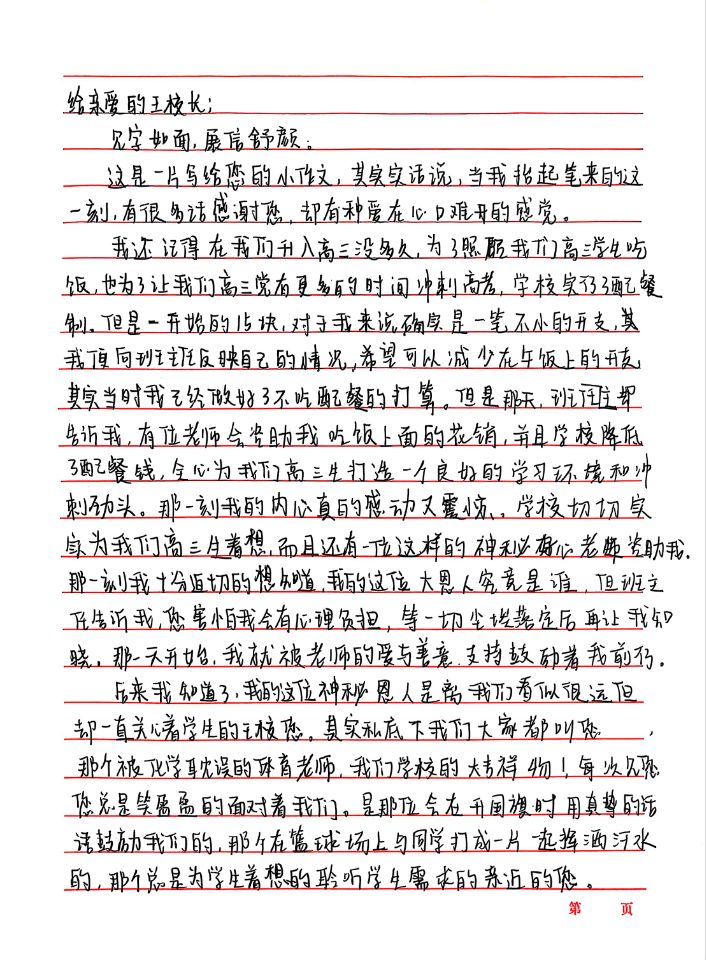 给亲爱的王校长:
见字如面,展信舒颜。
这是一片写给您的小作文,其实实话说,当我抬起笔来的这
一刻,有很多话感谢您,却有种爱在心口难开的感觉。
我还记得在我们升入高三没多久,为了照顾我们高三学生吃
饭,也为了让我们高三党有更多的时间冲刺高考,学校实行了配餐
制。但是一开始的15块,对于我来说确实是一笔不小的开支,其
我便向班主任反映自己的情况,希望可以减少在午饭上的开支
其实当时我已经做好了不吃配餐的打算。但是那天,班主任却
告诉我,有位老师会资助我吃饭上面的花销,并且学校降低
了配餐钱,全心为我们高三生打造一个良好的学习环境和冲
刺劲头。那一刻我的内心真的感动又震惊、学校切切实
实为我们高三生着想,而且还有一位这样的神秘好心老师资助我.
那一刻我十分迫切的想知道,我的这位大恩人究竟是谁,但班主
任告诉我,您害怕我会有心理负担,等一切尘埃落定后再让我知
晓。那一天开始,我就被老师的爱与善意支持鼓励着我前行。
后来我知道了,我的这位神秘恩人是离我们看似很远但
却一直关心着学生的王校您。其实私底下我们大家都叫您 ,
那个被化学耽误的体育老师,我们学校的大吉祥物!每次见您
您总是笑盈盈的面对着我们。是那位会在升国旗时用真挚的话
话鼓励我们的,那个在篮球场上与同学打成一片一起挥洒汗水
的,那个总是为学生着想的聆听学生需求的亲近的您。
第 页